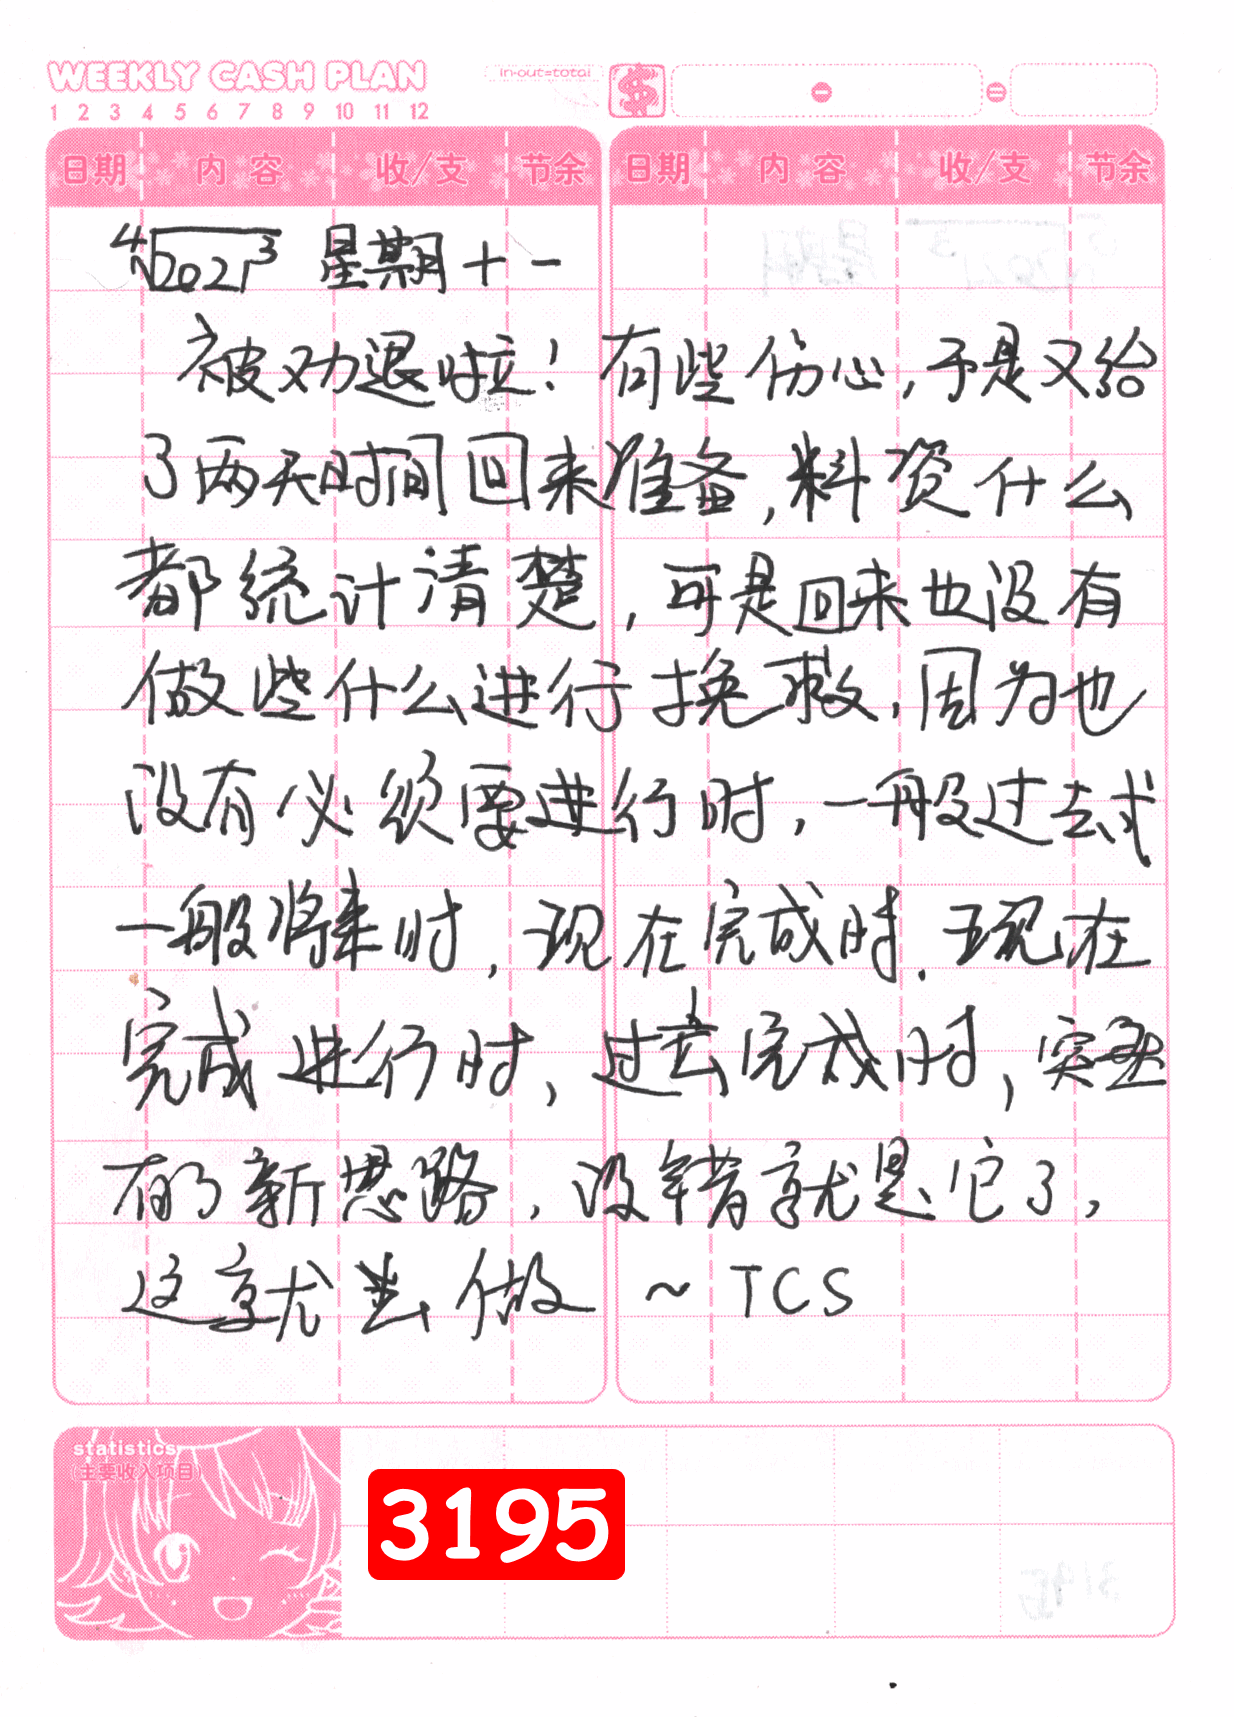 WEEKLY CASH PLAN
in-out=total
$
1 2 3 4 5 6 7 8 9 10 11 12
日期 内容 收/支 节余 日期 内容 收/支 节余
∜2021³ 星期十一
被劝退啦！有些伤心，于是又给
了两天时间回来准备，料资什么
都统计清楚，可是回来也没有
做些什么进行挽救，因为也
没有必须要进行时，一般过去式
一般将来时，现在完成时，现在
完成进行时，过去完成时，突然
有了新思路，没错就是它了，
这就去做 ~ TCS
statistics
(主要收入项目)
3195